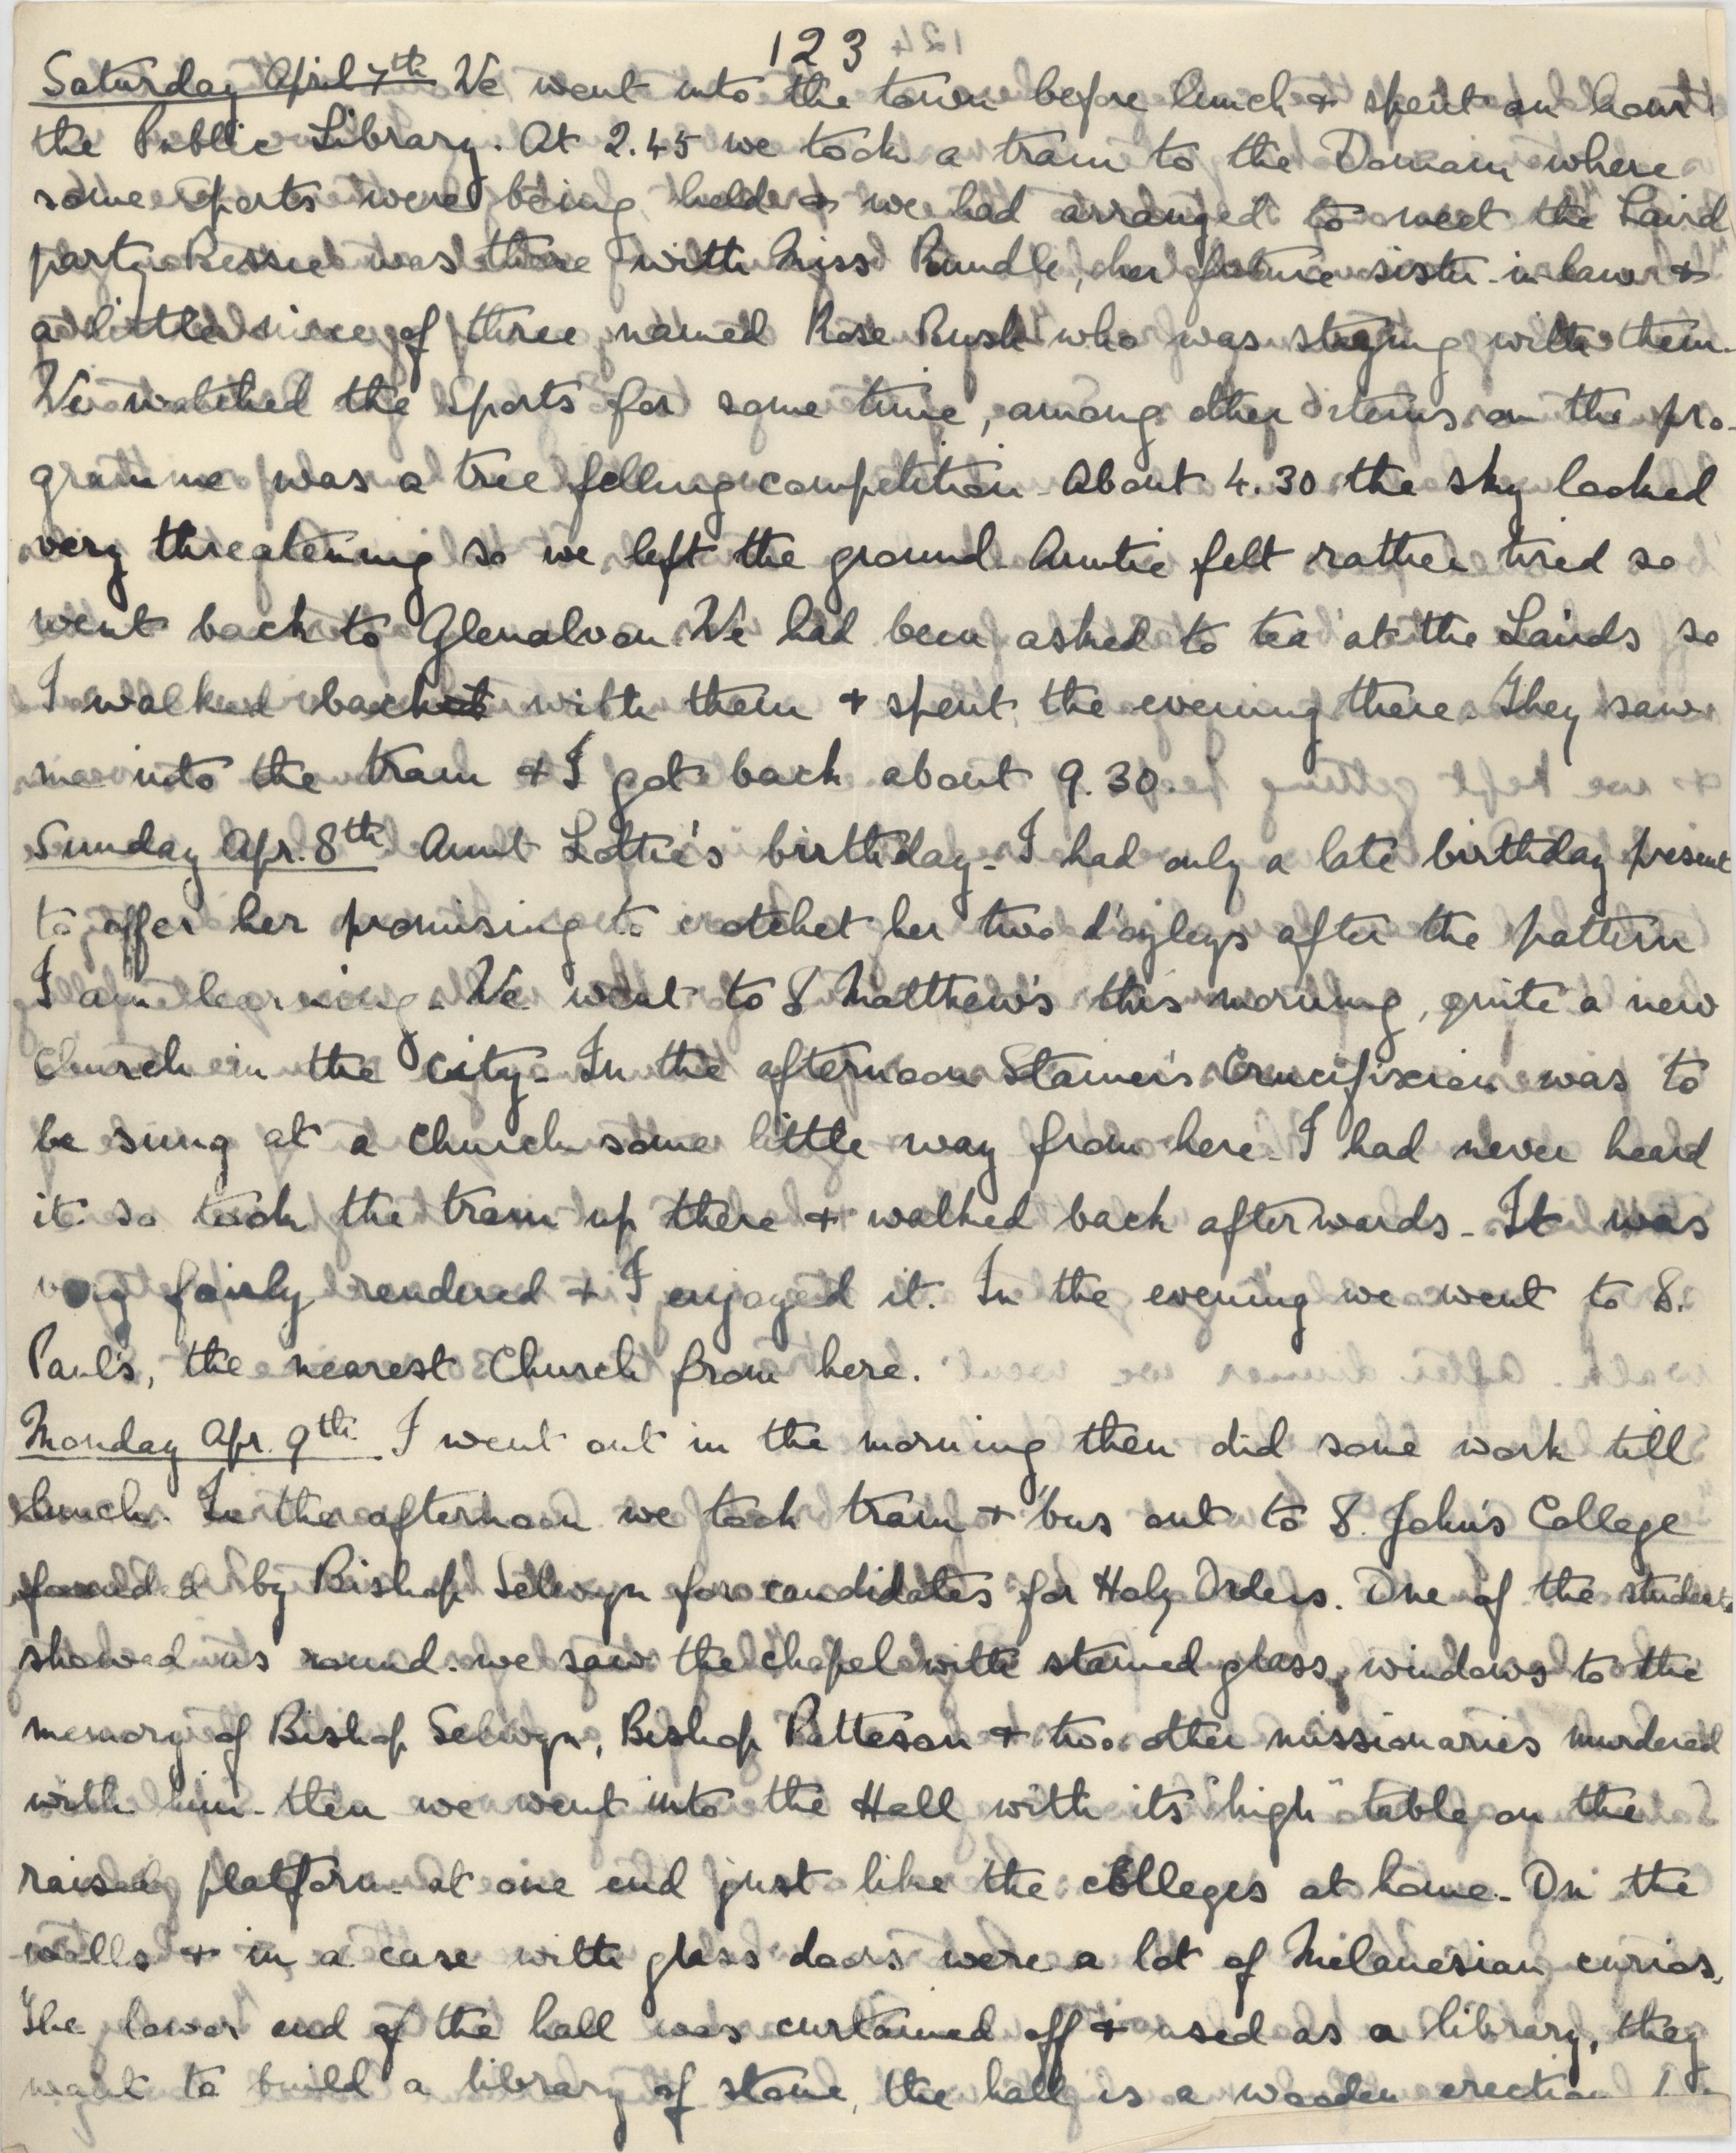 123
Saturday April 7th We went into the town before lunch & spent an hour
the Public Library. At 2.45 we took a tram to the Domain where
some sports were being held & we had arranged to meet the Laird
party. Bessie was there with Miss Rundle, her future sister-in-law &
a little niece of three named Rose Rush who was staying with them.
We watched the sports for some time, among other items on the pro-
gramme was a tree felling competition. About 4.30 the sky looked
very threatening so we left the ground. Auntie felt rather tired so
went back to Glenalvon. We had been asked to tea at the Lairds so
I walked back with them & spent the evening there. They saw
me into the tram & I got back about 9.30.
Sunday Apr. 8th Aunt Lottie's birthday - I had only a late birthday present
to offer her promising to crotchet her two d'oyleys after the pattern
I am learning. We went to S Matthew's this morning, quite a new
Church in the City - In the afternoon Stainer's Crucifixion was to
be sung at a Church some little way from here. I had never heard
it so took the tram up there & walked back afterwards - It was
very fairly rendered & I enjoyed it. In the evening we went to S.
Paul's, the nearest Church from here.
Monday Apr. 9th. I went out in the morning then did some work till
lunch. In the afternoon we took tram & 'bus out to S. John's College
founded by Bishop Selwyn for candidates for Holy Orders. One of the students
showed us round. we saw the chapel with stained glass windows to the
memory of Bishop Selwyn, Bishop Patteson & two other missionaries murdered
with him - then we went into the Hall with its "high" table on the
raised platform at one end just like the colleges at home - On the
walls & in a case with glass doors were a lot of Melanesian curios,
The lower end of the hall was curtained off & used as a library, they
want to build a library of stone, the hall is a wooden erection